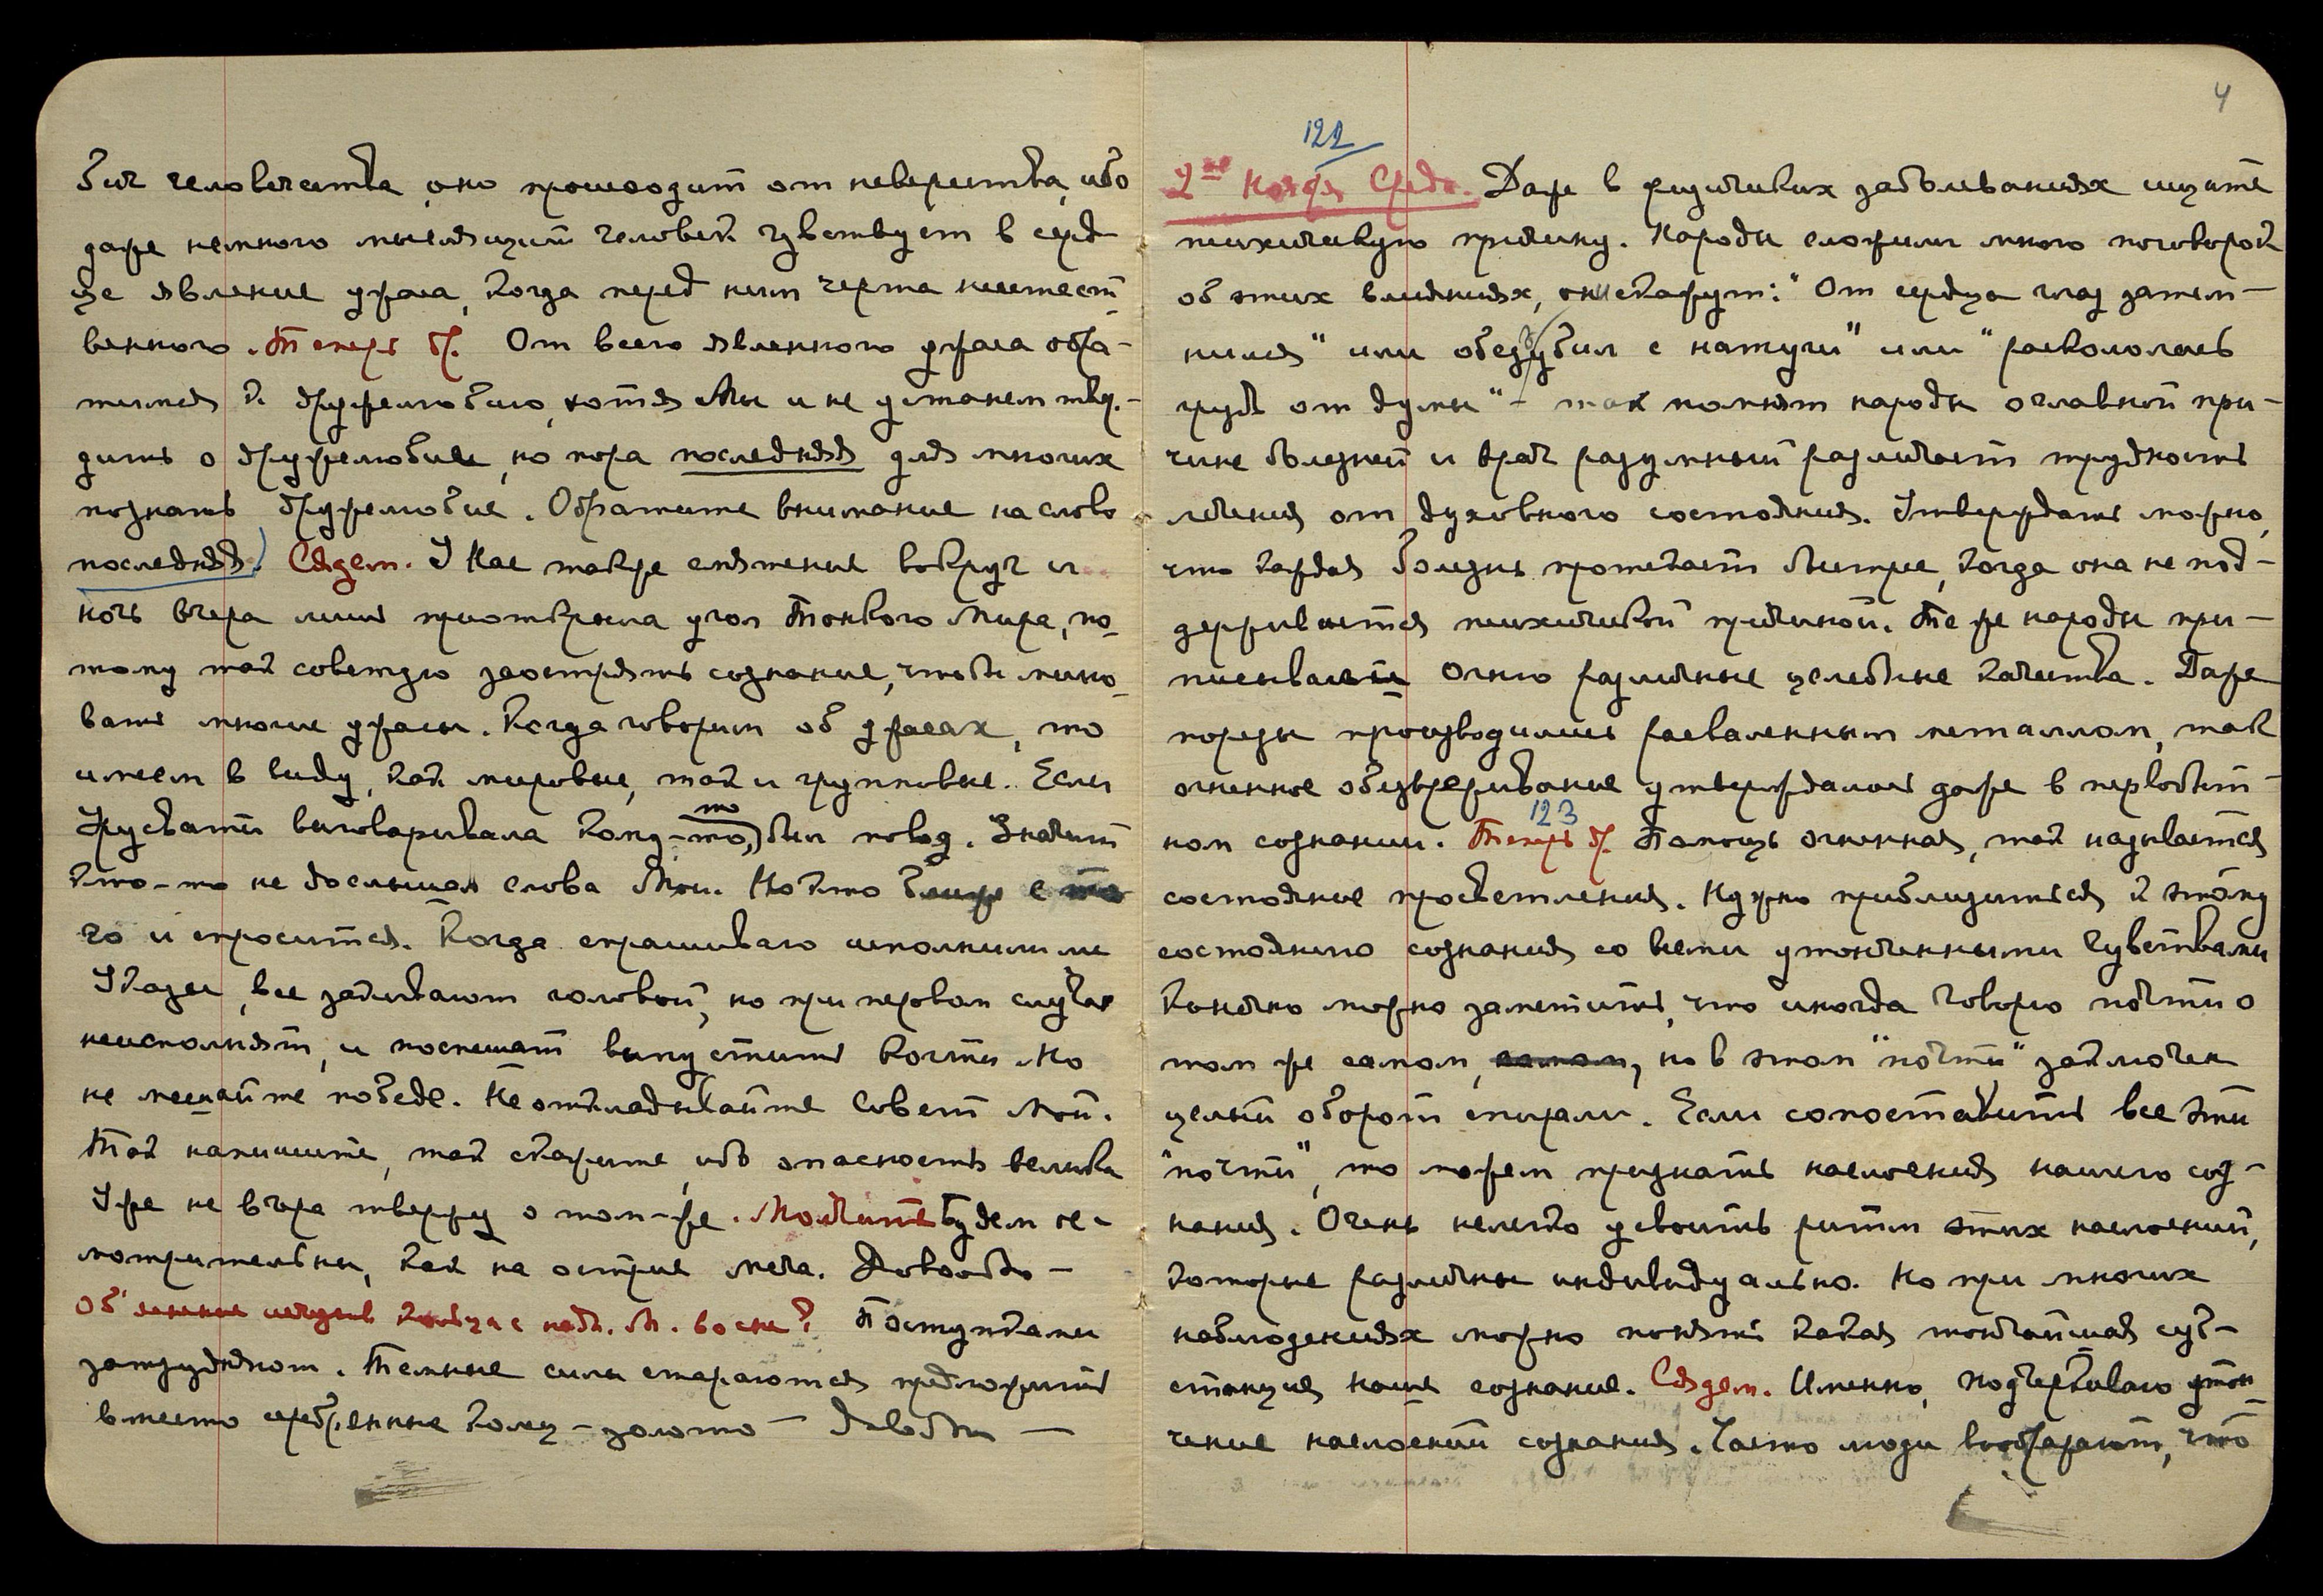 бич человечества, оно происходит от неверчества, ибо
даже немного мыслящий человек чувствует в серд-
це явление ужаса, когда перед ним черта неестест-
венного. Теперь др. От всего явленного ужаса обра-
тимся к дружелюбию, хотя Мы и не устанем твер-
дить о дружелюбие, но пора последняя для многих
познать дружелюбие. Обратите внимание на слово
последняя. Сядем. У Нас также смятение вокруг и
ночь вчера лишь приоткрыла угол Тонкого Мира, по-
тому так советую заострять сознание, чтобы мино-
вать многие ужасы. Когда говорим об ужасах, то
имеем в виду, как мировые, так и групповые. Если
Урусвати выговаривала кому-то, то был повод. Значит
кто-то не дослышал слова Мои. Но кто ближе с то
го и спросится. Когда спрашиваю исполнили ли
Указы, все закивают головой, но при первом случае
неисполнят, и поспешат выпустить когти. Но
не мешайте победе. Не откладывайте Совет Мой.
Так напишите, так скажите, ибо опасность велика
Уже не вчера твержу о том-же. Молчите Будем ос-
мотрительны, как на острие меча. Довольно -
Об'яснение
Поступками
затрудняют. Темные силы стараются предложить
вместо серебренные колец - золото - довольно -
4
122
2го Ноября Среда. Даже в физических заболеваниях ищите
психическую причину. Народы сложили много поговорок
об этих влияниях, они скажут: "От сердца глаз затем-
нился" или "обеззубил с натуги" или "раскололась
грудь от думы" - так помнят народы о главной при-
чине болезней и врач разумный различает трудность
лечения от духовного состояния. Утверждать можно,
что каждая болезнь протекает быстрее, когда она не под-
держивается психической причиной. Те же народы при-
писывают Огню различные целебные качества. Даже
порезы производились раскаленным металлом, так
огненное обезвреживание утверждалось даже в первобыт-
ном сознании. Теперь др. Помощь огненная, так называется
123
состояние просветления. Нужно приблизиться к этому
состоянию сознания со всеми утонченными чувствами
Конечно можно заметить, что иногда говорю почти о
том же самом, самом, но в этом "почти" заключен
целый оборот спирали. Если сопоставить все эти
"почти", то можем признать наслоения нашего соз-
нания. Очень нелегко усвоить ритм этих наслоений,
которые различны индивидуально. Но при многих
наблюдениях можно понять какая тончайшая суб-
станция наше сознание. Сядем. Именно, подчеркиваю утон-
чение наслоений сознания. Часто люди воображают, что